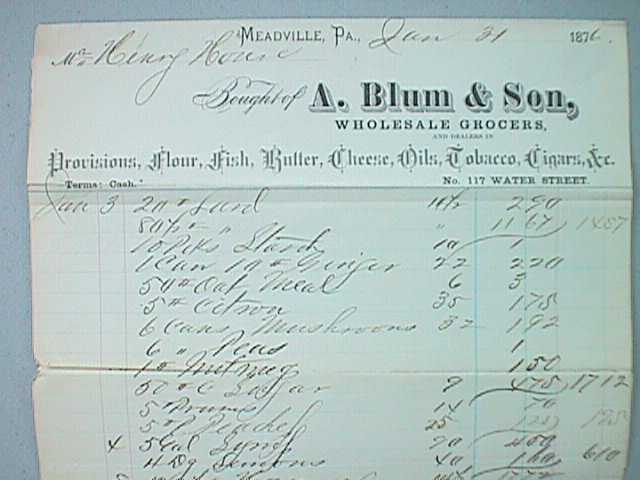 MEADVILLE, PA., Jan 31 1876.
Mr Henry House
Bought of A. Blum & Son,
WHOLESALE GROCERS,
AND DEALERS IN
Provisions, Flour, Fish, Butter, Cheese, Oils, Tobacco, Cigars, &c.
Terms: Cash. No. 117 WATER STREET.
Jan 3 20 # Lard 14½ 290
80½ # " " 11 67 1457
10 Pks Starch 10 1
1 Can 10 # Ginger 22 220
50 # Oat Meal 6 3
5 # Citron 35 175
6 Cans Mushrooms 32 192
6 " Peas 1
1 # Nutmeg 150
50 # Sugar 9 475 1712
5 # Prunes 14 70
5 # Peaches 25 125 195
4 5 Gal Syrup 90 450
4 Dz Lemons 40 160 610